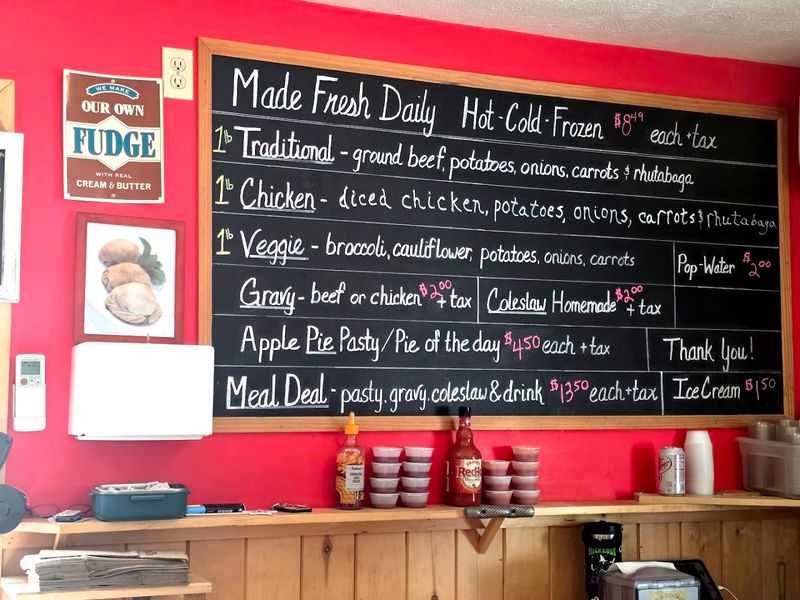 WE MAKE
OUR OWN
FUDGE
WITH REAL
CREAM & BUTTER
Made Fresh Daily Hot-Cold-Frozen $8.49 each + tax
1lb Traditional - ground beef, potatoes, onions, carrots & rhutabaga
1lb Chicken - diced chicken, potatoes, onions, carrots & rhutabaga
1lb Veggie - broccoli, cauliflower, potatoes, onions, carrots
Pop-Water $2.00
Gravy - beef or chicken $2.00 + tax
Coleslaw Homemade $2.00 + tax
Apple Pie Pasty/Pie of the day $4.50 each + tax
Thank You!
Meal Deal - pasty, gravy, coleslaw & drink $13.50 each + tax
Ice Cream $1.50
RedHot